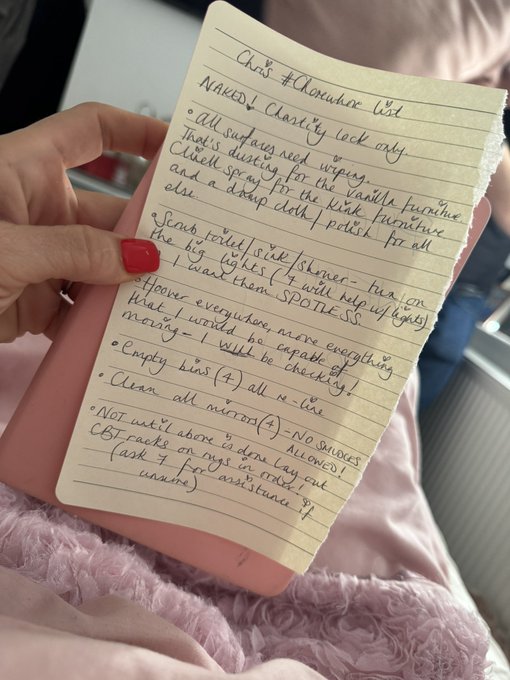 Chris #Chorewhore list
NAKED! Chastity lock only.
• All surfaces need wiping.
That's dusting for the vanilla furniture
Clinell spray for the kink furniture
and a damp cloth/polish for all
else.
• Scrub toilet/sink/shower - turn on
the big lights (7 will help w/ lights)
I want them SPOTLESS
• Hoover everywhere, move everything
that I would be capable of
moving - I will be checking!
• Empty bins (4) all re-line
• Clean all mirrors (4) - NO SMUDGES
ALLOWED!
• NOT until above is done lay out
CBT racks on rugs in order!
(ask 7 for assistance if
unsure)